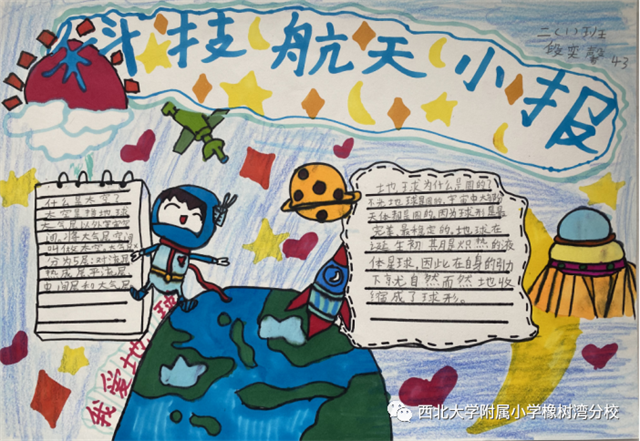 科技航天小报
二(1)班
段奕馨
43
什么是太空?
太空是指地球
大气层以外宇宙空
间,
叫做太空,大气层
分为5层:对流层
热成层平流层
中间层和大气层
土地球为什么是圆的?
不光地球是圆的,宇宙中大部分
天体都是圆的,因为球形是最
完美最稳定的,地球在
诞生初期是炽热的液
体星球,因此在自身的引力
下就自然而然地收
缩成了球形。
我爱地球
西北大学附属小学橡树湾分校